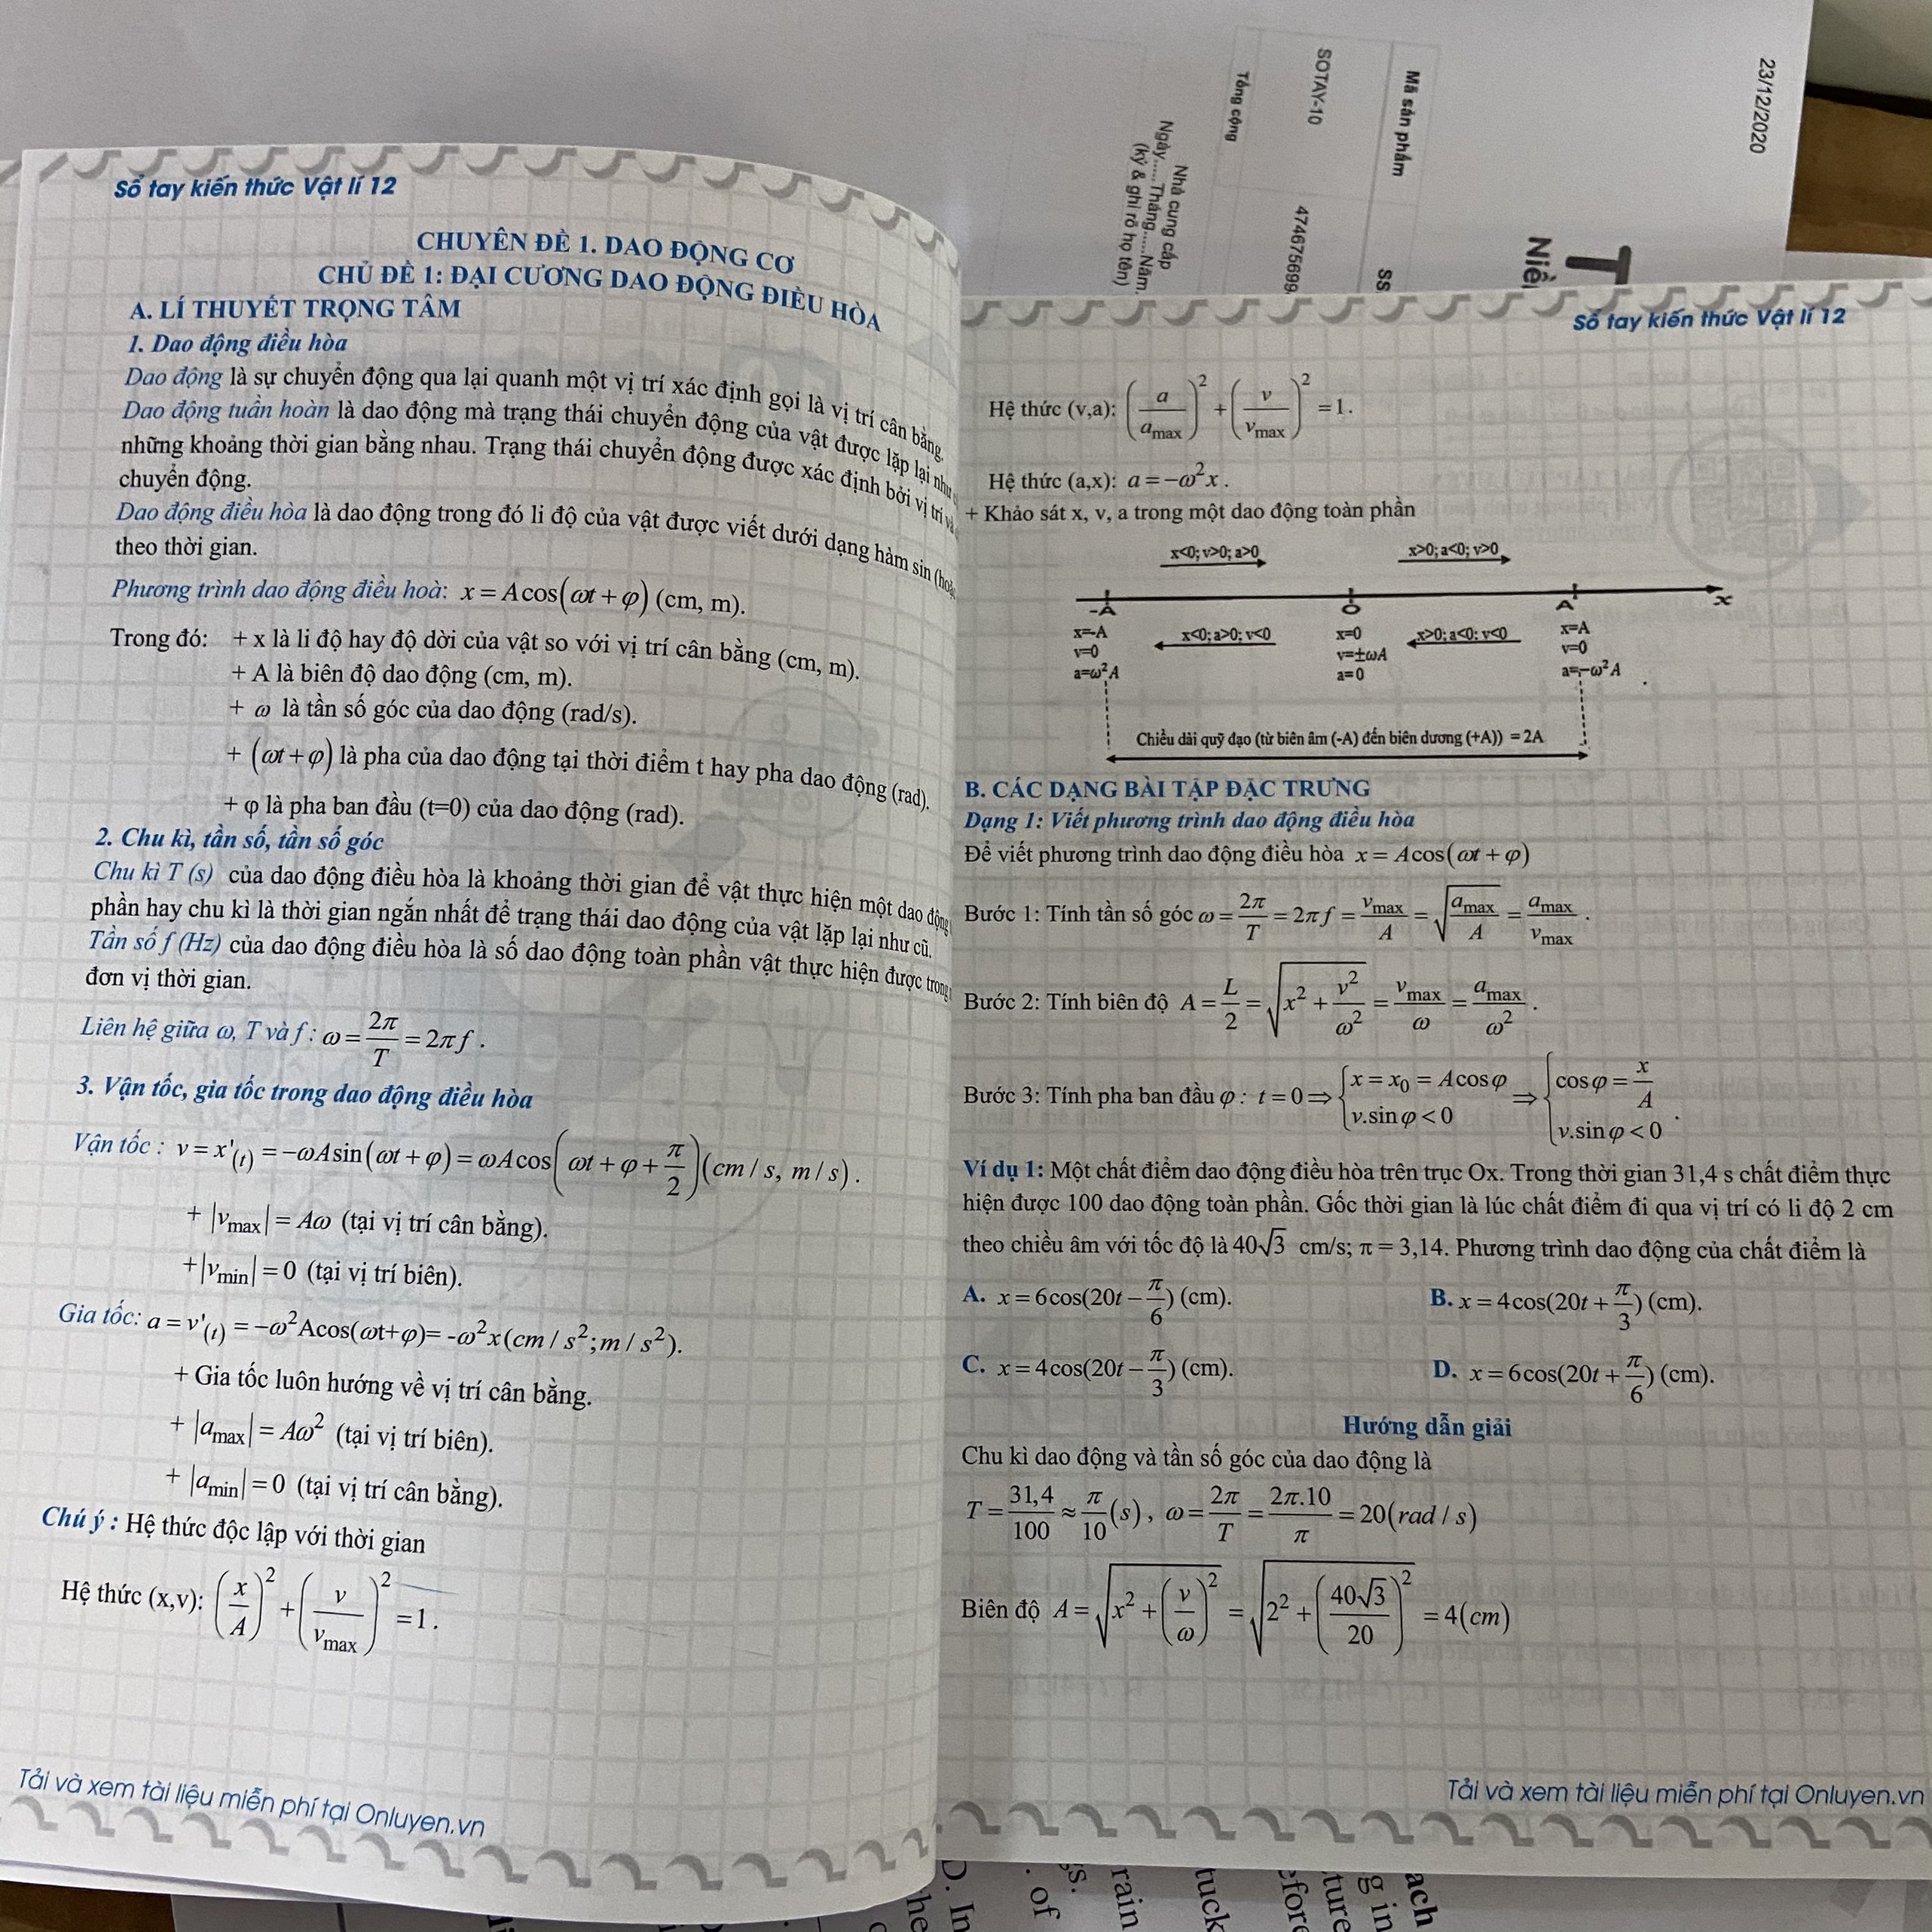 Sổ tay kiến thức Vật lí 12
CHUYÊN ĐỀ 1. DAO ĐỘNG CƠ
CHỦ ĐỀ 1: ĐẠI CƯƠNG DAO ĐỘNG ĐIỀU HÒA
A. LÍ THUYẾT TRỌNG TÂM
1. Dao động điều hòa
Dao động là sự chuyển động qua lại quanh một vị trí xác định gọi là vị trí cân bằng.
Dao động tuần hoàn là dao động mà trạng thái chuyển động của vật được lặp lại như
những khoảng thời gian bằng nhau. Trạng thái chuyển động được xác định bởi vị trí
chuyển động.
Dao động điều hòa là dao động trong đó li độ của vật được viết dưới dạng hàm sin
theo thời gian.
Phương trình dao động điều hoà: x = Acos(ωt + φ) (cm, m).
Trong đó: + x là li độ hay độ dời của vật so với vị trí cân bằng (cm, m).
+ A là biên độ dao động (cm, m).
+ ω là tần số góc của dao động (rad/s).
+ (ωt + φ) là pha của dao động tại thời điểm t hay pha dao động (rad).
+ φ là pha ban đầu (t=0) của dao động (rad).
2. Chu kì, tần số, tần số góc
Chu kì T (s) của dao động điều hòa là khoảng thời gian để vật thực hiện một dao động
phần hay chu kì là thời gian ngắn nhất để trạng thái dao động của vật lặp lại như cũ.
Tần số f (Hz) của dao động điều hòa là số dao động toàn phần vật thực hiện được trong
đơn vị thời gian.
Liên hệ giữa ω, T và f : ω = 2π/T = 2πf .
3. Vận tốc, gia tốc trong dao động điều hòa
Vận tốc : v = x'(t) = −ωAsin(ωt + φ) = ωAcos(ωt + φ + π/2)(cm / s, m / s).
+ |vmax| = Aω (tại vị trí cân bằng).
+|vmin| = 0 (tại vị trí biên).
Gia tốc: a = v'(t) = −ω²Acos(ωt+φ)= -ω²x(cm / s²;m / s²).
+ Gia tốc luôn hướng về vị trí cân bằng.
+ |amax| = Aω² (tại vị trí biên).
+ |amin| = 0 (tại vị trí cân bằng).
Chú ý : Hệ thức độc lập với thời gian
Hệ thức (x,v): (x/A)² + (v/vmax)² = 1 .
Tải và xem tài liệu miễn phí tại Onluyen.vn
23/12/2020
Mã sản phẩm
SOTAY-10
Tổng cộng
474675699
SS
Nhà cung cấp
Ngày.....Tháng.....Năm.
(ký & ghi rõ họ tên)
T
Sổ tay kiến thức Vật lí 12
Hệ thức (v,a): (a/amax)² + (v/vmax)² = 1.
Hệ thức (a,x): a = −ω²x .
+ Khảo sát x, v, a trong một dao động toàn phần
x<0; v>0; a>0 x>0; a<0; v>0
-A O A x
x<0; a>0; v<0 x>0; a<0; v<0
x=-A x=0 x=A
v=0 v=±ωA v=0
a=ω²A a=0 a=−ω²A
Chiều dài quỹ đạo (từ biên âm (-A) đến biên dương (+A)) = 2A
B. CÁC DẠNG BÀI TẬP ĐẶC TRƯNG
Dạng 1: Viết phương trình dao động điều hòa
Để viết phương trình dao động điều hòa x = Acos(ωt + φ)
Bước 1: Tính tần số góc ω = 2π/T = 2πf = vmax/A = √(amax/A) = amax/vmax .
Bước 2: Tính biên độ A = L/2 = √(x² + v²/ω²) = vmax/ω = amax/ω² .
Bước 3: Tính pha ban đầu φ : t = 0 ⇒ {x = x₀ = Acosφ; v.sinφ < 0 ⇒ {cosφ = x/A; v.sinφ < 0 .
Ví dụ 1: Một chất điểm dao động điều hòa trên trục Ox. Trong thời gian 31,4 s chất điểm thực
hiện được 100 dao động toàn phần. Gốc thời gian là lúc chất điểm đi qua vị trí có li độ 2 cm
theo chiều âm với tốc độ là 40√3 cm/s; π = 3,14. Phương trình dao động của chất điểm là
A. x = 6cos(20t − π/6) (cm). B. x = 4cos(20t + π/3) (cm).
C. x = 4cos(20t − π/3) (cm). D. x = 6cos(20t + π/6) (cm).
Hướng dẫn giải
Chu kì dao động và tần số góc của dao động là
T = 31,4/100 ≈ π/10 (s), ω = 2π/T = 2π.10/π = 20(rad / s)
Biên độ A = √(x² + (v/ω)²) = √(2² + (40√3/20)²) = 4(cm)
Tải và xem tài liệu miễn phí tại Onluyen.vn
In
of
rain
tuck
ach